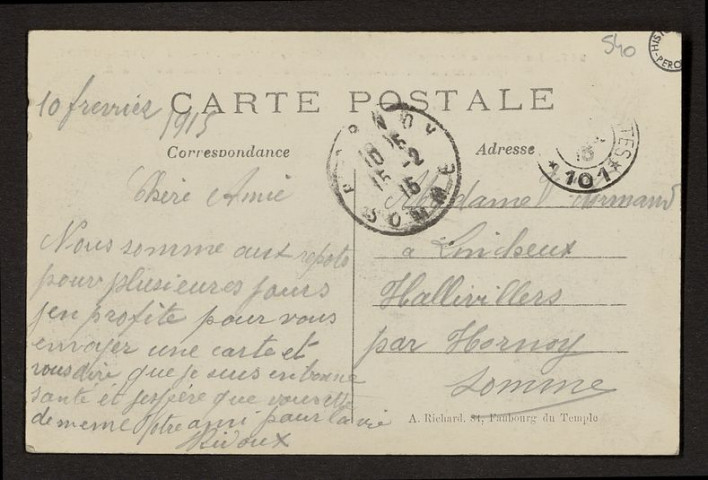 540
10 frevrier 1915
CARTE POSTALE
Correspondance
Adresse
HORNOY
18 15
15 - 2
15
SOMME
*101*
Chère Amie
Nous somme aux repots
pour plusieures jours
jen profite pour vous
envoyer une carte et
vous dire que je suis en bonne
santé et jespère que vous ettes
de meme votre ami pour la vie
Madame
Normand
a Lincheux
Hallivillers
par Hornoy
Somme
A. Richard. 84, Faubourg du Temple